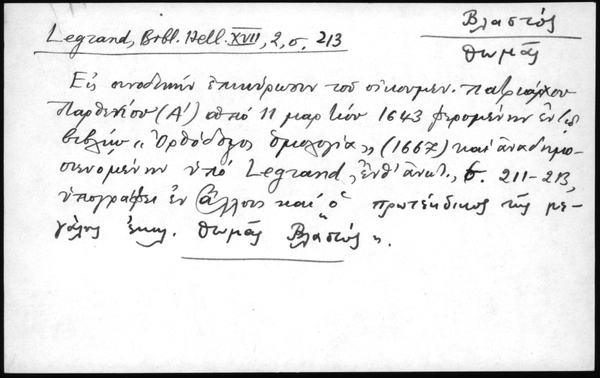 Βλαστός
Θωμᾶς
Legrand, Bibl. Hell. XVII, 2, σ. 213
Εἰς συνοδικὴν ἐπικύρωσιν τοῦ οἰκουμεν. Πατριάρχου
Παρθενίου (Α') ἀπὸ 11 μαρτίου 1643 φερομένην ἐν τῷ
βιβλίῳ "Ὀρθόδοξος ὁμολογία" (1667) καὶ ἀναδημο-
σιευομένην ὑπὸ Legrand, ἔνθ' ἀνωτ., σ. 211-213,
ὑπογράφει ἐν ἄλλοις καὶ ὁ πρωτέκδικος τῆς με-
γάλης ἐκκλ. "Θωμᾶς Βλαστός".